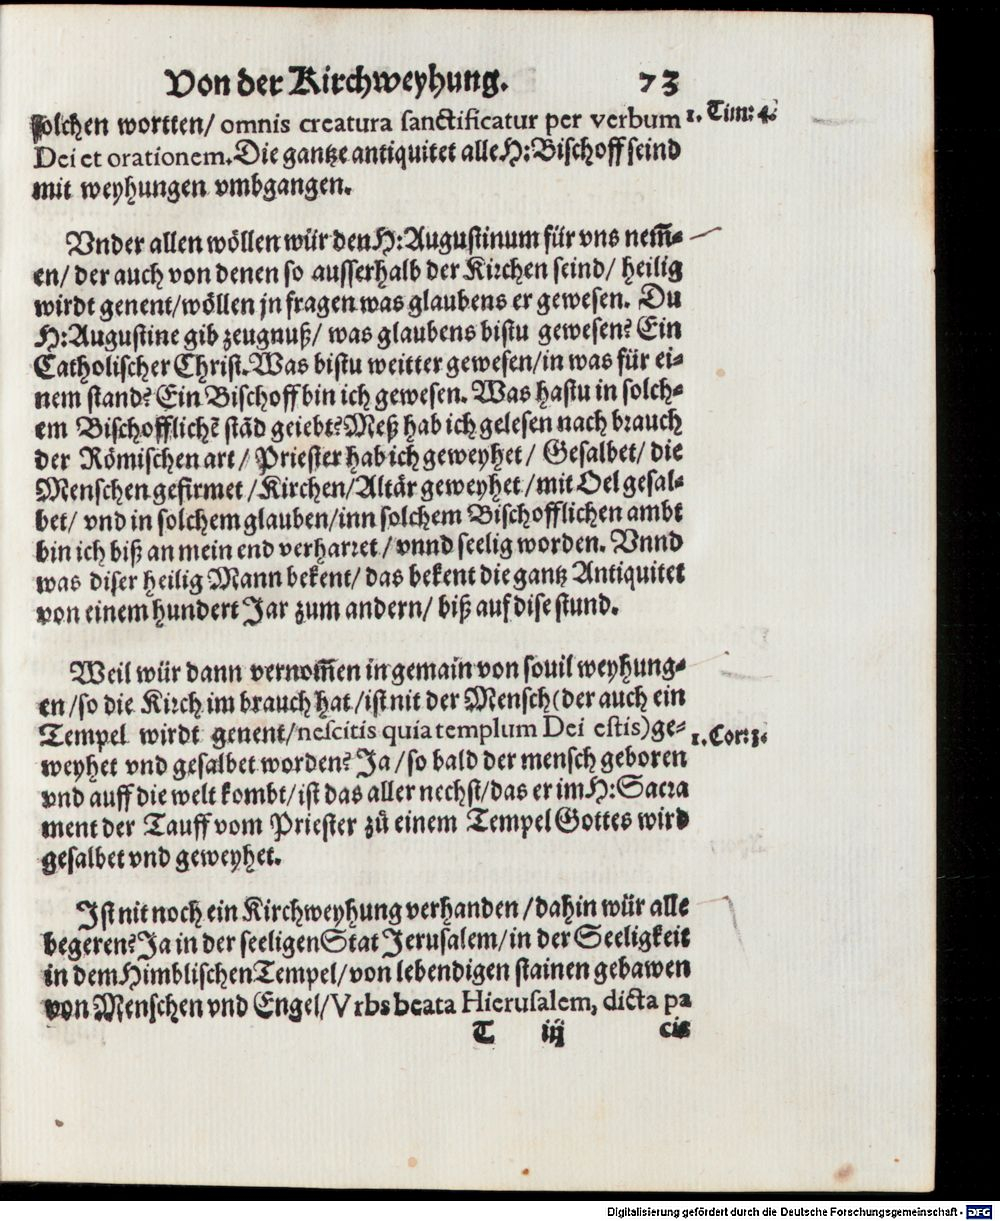 Von der Kirchweyhung. 73
solchen wortten/ omnis creatura sanctificatur per verbum 1. Tim: 4.
Dei et orationem. Die gantze antiquitet alle H: Bischoff seind
mit weyhungen vmbgangen.
Vnder allen wöllen wür den H: Augustinum für vns nem̄-
en/ der auch von denen so ausserhalb der Kirchen seind/ heilig
wirdt genent/ wöllen jn fragen was glaubens er gewesen. Du
H: Augustine gib zeugnuß/ was glaubens bistu gewesen? Ein
Catholischer Christ. Was bistu weitter gewesen/ in was für ei-
nem stand? Ein Bischoff bin ich gewesen. Was hastu in solch-
em Bischofflichē stād geiebt? Meß hab ich gelesen nach brauch
der Römischen art/ Priester hab ich geweyhet/ Gesalbet/ die
Menschen gefirmet/ Kirchen/ Altär geweyhet/ mit Oel gesal-
bet/ vnd in solchem glauben/ inn solchem Bischofflichen ambt
bin ich biß an mein end verharret/ vnnd seelig worden. Vnnd
was diser heilig Mann bekent/ das bekent die gantz Antiquitet
von einem hundert Jar zum andern/ biß auf dise stund.
Weil wür dann vernom̄en in gemain von souil weyhung-
en/ so die Kirch im brauch hat/ ist nit der Mensch (der auch ein
Tempel wirdt genent/ nescitis quia templum Dei estis) ge- 1. Cor: 3.
weyhet vnd gesalbet worden? Ja/ so bald der mensch geboren
vnd auff die welt kombt/ ist das aller nechst/ das er im H: Sacra
ment der Tauff vom Priester zů einem Tempel Gottes wird
gesalbet vnd geweyhet.
Ist nit noch ein Kirchweyhung verhanden/ dahin wür alle
begeren? Ja in der seeligen Stat Jerusalem/ in der Seeligkeit
in dem Himblischen Tempel/ von lebendigen stainen gebawen
von Menschen vnd Engel/ Vrbs beata Hierusalem, dicta pa
T iij cis
Digitalisierung gefördert durch die Deutsche Forschungsgemeinschaft - DFG